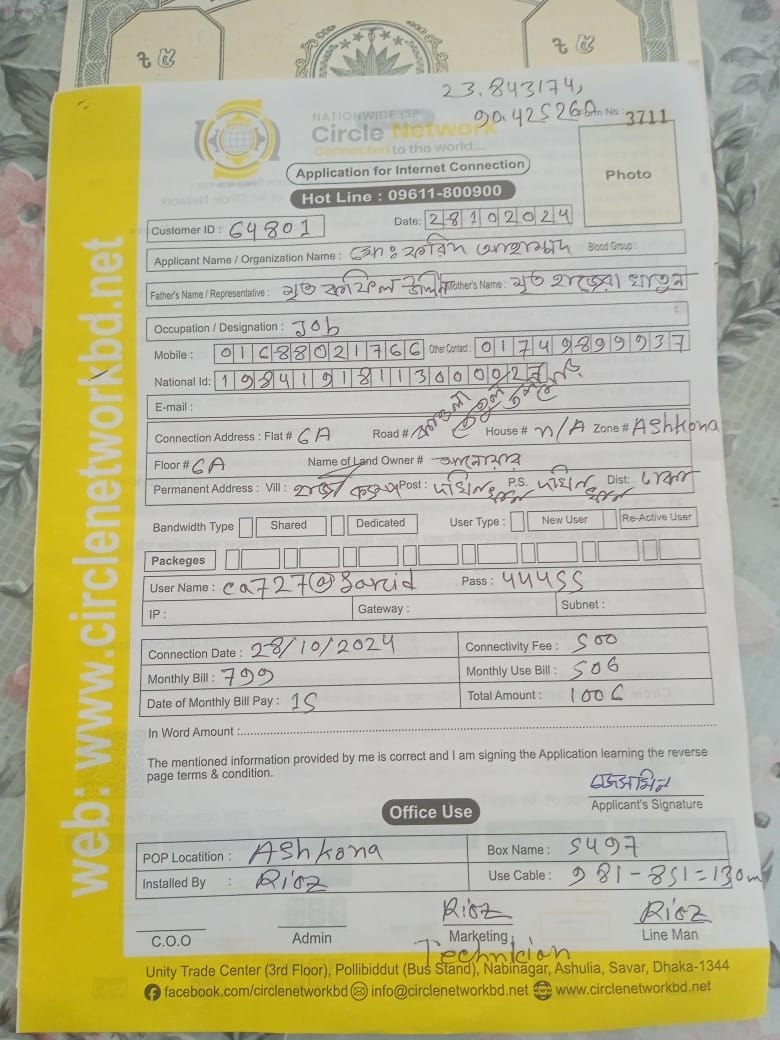 ২৫ ২৫
23.843174,
90.425260
Form No : 3711
NATIONWIDE ISP
Circle Network
Connected to the world....
Application for Internet Connection
Hot Line : 09611-800900
Photo
Customer ID : 64801 Date: 28102024
Applicant Name / Organization Name : মোঃ ফরিদ আহাম্মদ Blood Group :
Father's Name / Representative : মৃত কফিল উদ্দিন Mother's Name : মৃত হাজেরা খাতুন
Occupation / Designation : Job
Mobile : 01688021766 Other Contact : 01749899937
National Id: 19841918113000027
E-mail :
Connection Address : Flat # 6A Road # House # n/A Zone # Ashkona
Floor # 6A Name of Land Owner # আনোয়ার
Permanent Address : Vill: Post: P.S. Dist: ঢাকা
Bandwidth Type Shared Dedicated User Type : New User Re-Active User
Packeges
User Name : ca727@ Pass : 44455
IP : Gateway : Subnet :
Connection Date : 28/10/2024 Connectivity Fee : 500
Monthly Bill : 799 Monthly Use Bill : 506
Date of Monthly Bill Pay : 15 Total Amount : 1006
In Word Amount :
The mentioned information provided by me is correct and I am signing the Application learning the reverse
page terms & condition.
জেসমিন
Applicant's Signature
Office Use
POP Locatition : Ashkona Box Name : 5497
Installed By : Rioz Use Cable : 981-851=130m
Rioz Rioz
C.O.O Admin Marketing Line Man
Technician
Unity Trade Center (3rd Floor), Pollibiddut (Bus Stand), Nabinagar, Ashulia, Savar, Dhaka-1344
facebook.com/circlenetworkbd info@circlenetworkbd.net www.circlenetworkbd.net
web: www.circlenetworkbd.net